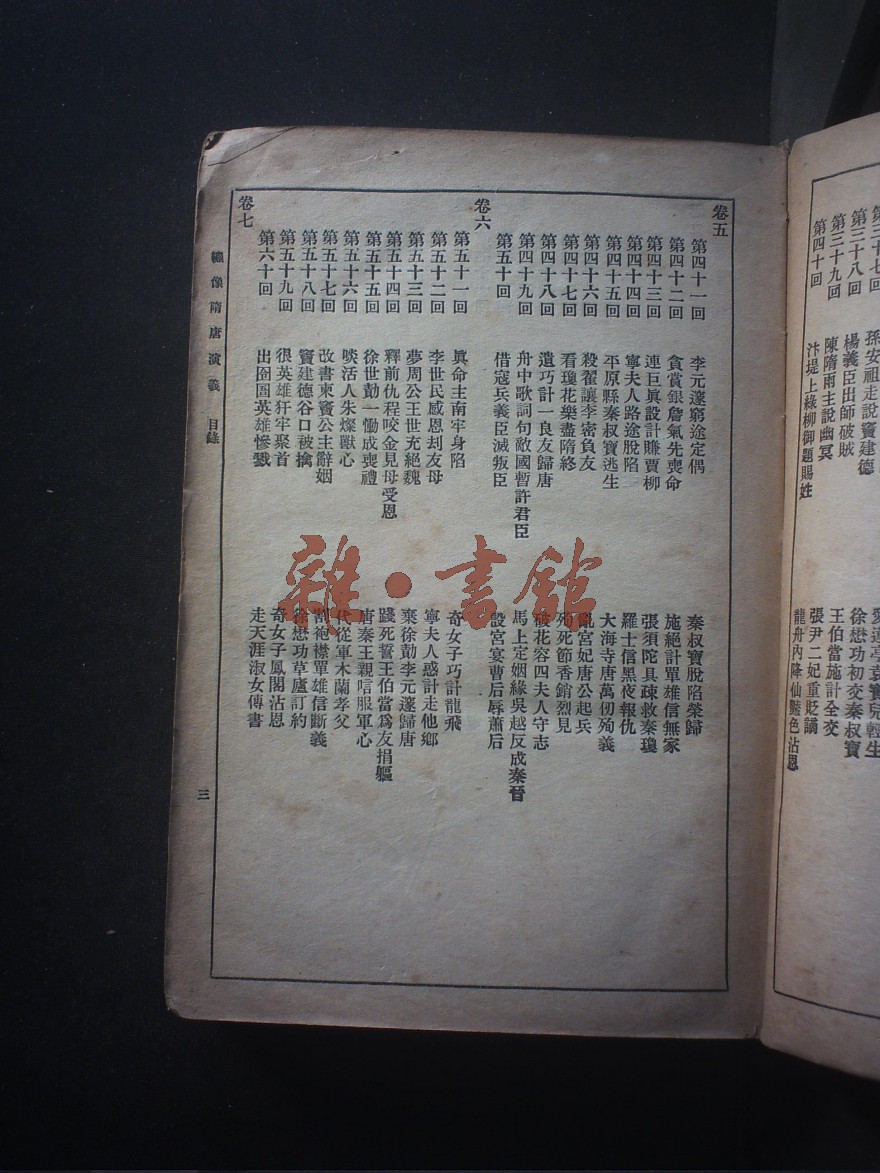 第三十七回 孫安祖走說竇建德 徐懋功初交秦叔寶
第三十八回 楊義臣出師破賊 王伯當施計全交
第三十九回 陳隋兩主說幽冥 張尹二妃重貶謫
第四十回 汴堤上綠柳御題賜姓 龍舟內降仙豔色沾恩
卷五
第四十一回 李元邃窮途定偶 秦叔寶脫陷榮歸
第四十二回 貪賞銀詹氣先喪命 施絕計單雄信無家
第四十三回 連巨眞設計賺賈柳 張須陀具疎救秦瓊
第四十四回 寧夫人路途脫陷 羅士信黑夜報仇
第四十五回 平原縣秦叔寶逃生 大海寺唐萬仞殉義
第四十六回 殺翟讓李密負友 亂宮妃唐公起兵
第四十七回 看瓊花樂盡隋終 殉死節香銷烈見
第四十八回 遺巧計一良友歸唐 破花容四夫人守志
第四十九回 舟中歌詞句敵國暫許君臣 馬上定姻緣吳越反成秦晉
第五十回 借寇兵義臣滅叛臣 設宮宴曹后辱蕭后
卷六
第五十一回 眞命主南牢身陷 奇女子巧計龍飛
第五十二回 李世民感恩刦友母 寧夫人惑計走他鄉
第五十三回 夢周公王世充絕魏 棄徐勣李元邃歸唐
第五十四回 釋前仇程咬金見母受恩 踐死誓王伯當爲友捐軀
第五十五回 徐世勣一慟成喪禮 唐秦王親唁服軍心
第五十六回 啖活人朱燦獸心 代從軍木蘭孝父
第五十七回 改書柬竇公主辭姻 割袍襟單雄信斷義
第五十八回 竇建德谷口被擒 徐懋功草廬訂約
第五十九回 狠英雄犴牢聚首 奇女子鳳閣沾恩
第六十回 出囹圄英雄慘戮 走天涯淑女傳書
卷七
繡像隋唐演義 目錄
三
雜·書館